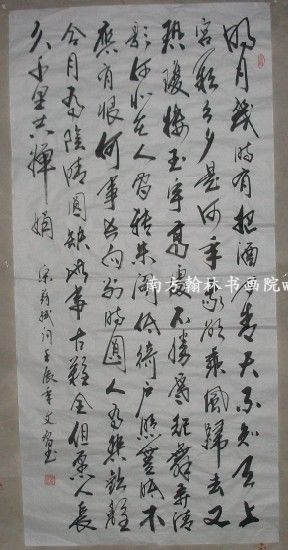 明月几时有把酒问青天不知天上
宫阙今夕是何年我欲乘风归去又
恐琼楼玉宇高处不胜寒起舞弄清
影何似在人间转朱阁低绮户照无眠不
应有恨何事长向别时圆人有悲欢离
合月有阴晴圆缺此事古难全但愿人长
久千里共婵娟
宋苏轼词壬辰年文
南方翰林书画院w